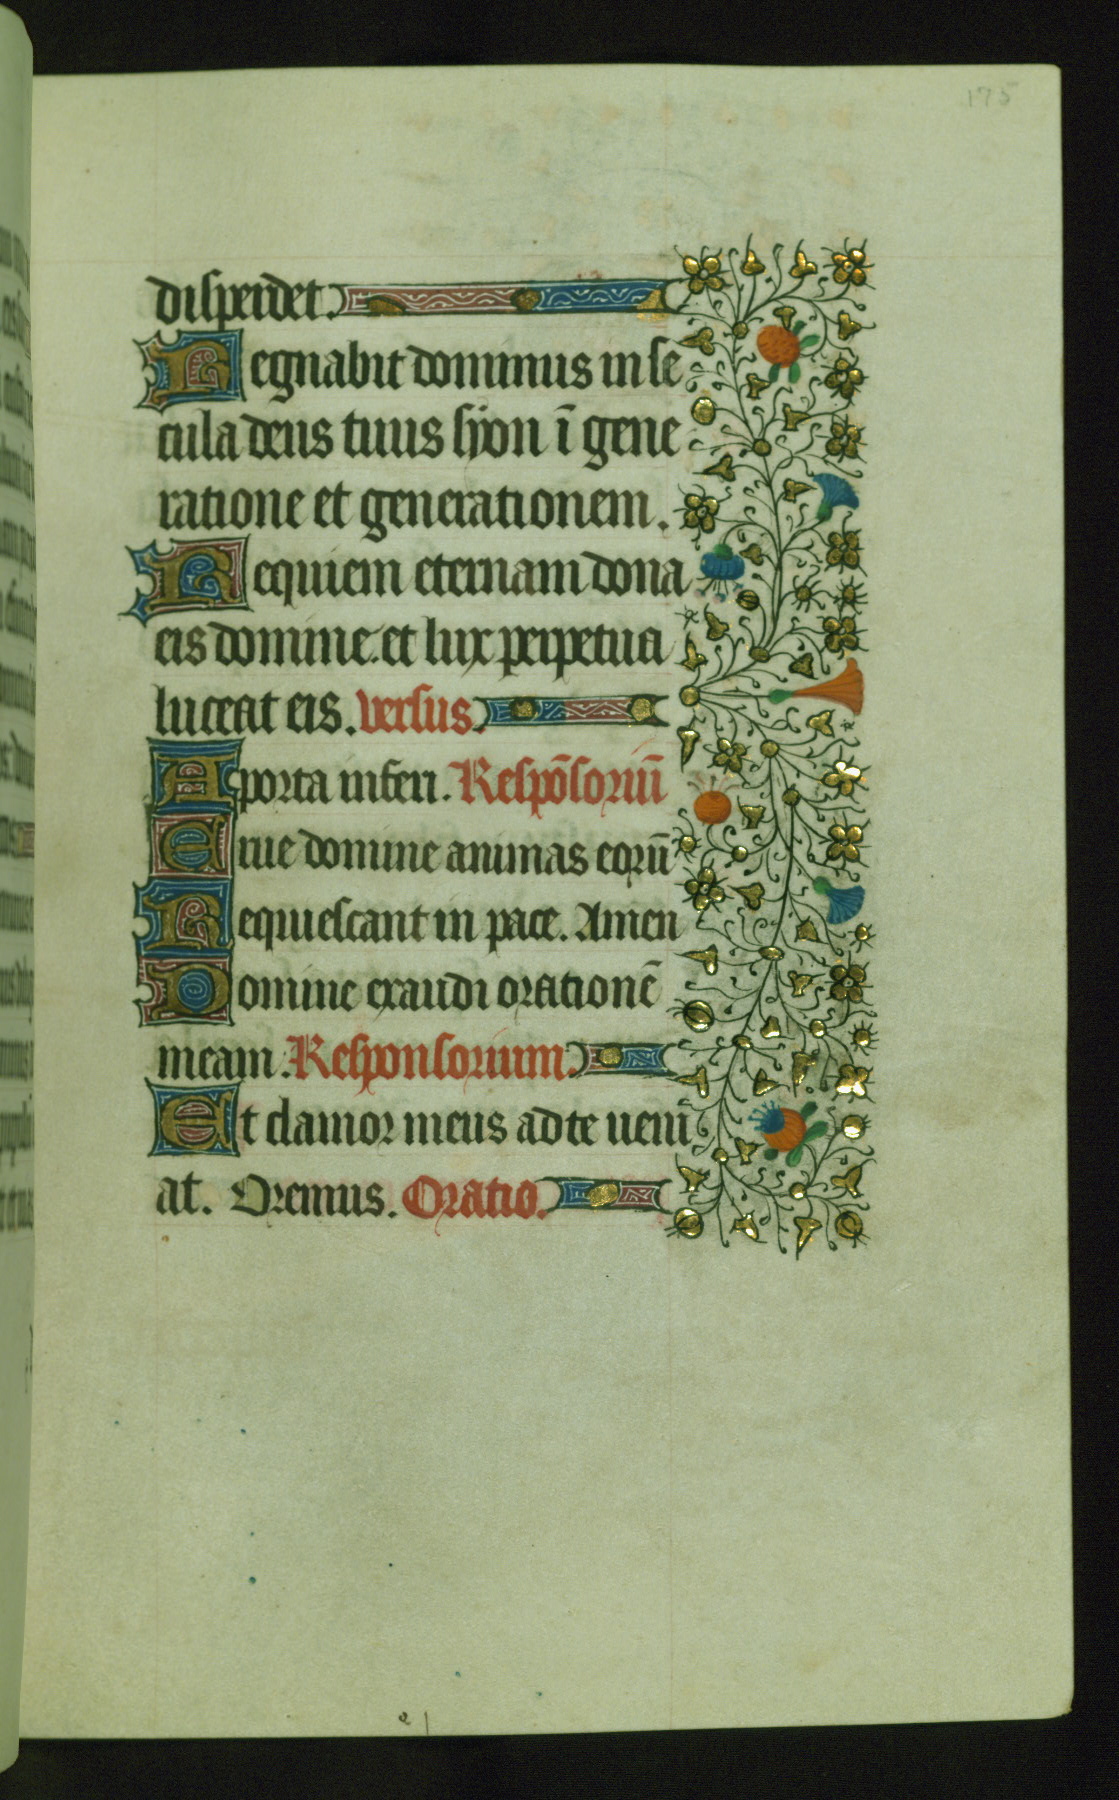 175
disperdet.
Regnabit dominus in se
cula deus tuus syon ī gene
ratione et generationem.
Requiem eternam dona
eis domine. et lux perpetua
luceat eis. versus.
A porta inferi. Respōsoriū
Erue domine animas eorū
Requiescant in pace. Amen
Domine exaudi orationē
meam. Responsorium.
Et clamor meus ad te veni
at. Oremus. Oratio.